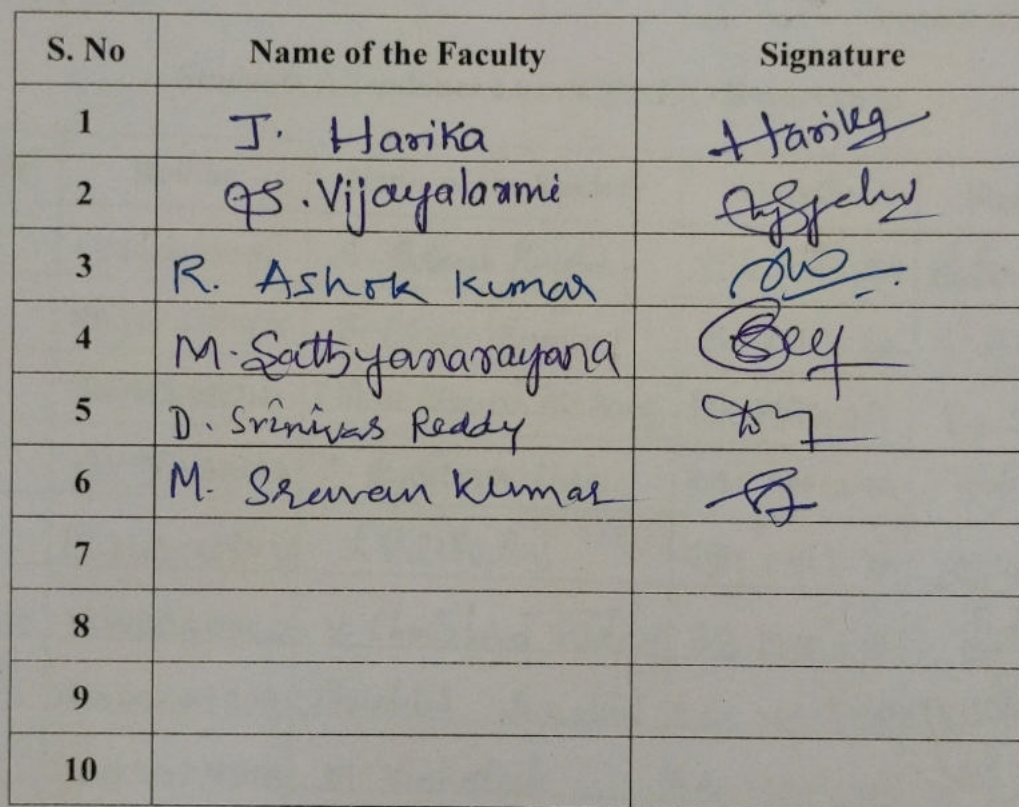 S. No Name of the Faculty Signature
1 J. Harika Harika
2 Vijayalaxmi
3 R. Ashok Kumar
4 M. Sathyanarayana
5 D. Srinivas Reddy
6 M. Sravan Kumar
7
8
9
10